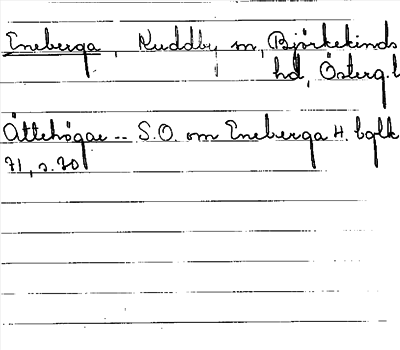 Eneberga, Kuddby sn, Björkekinds
hd, Österg.l
Ättehögar -- S.O. om Eneberga H. bglk
71, s. 70